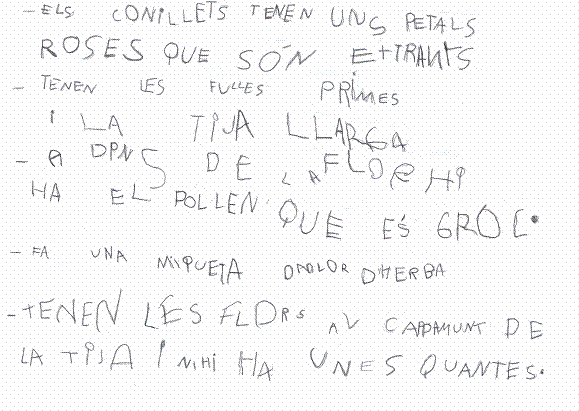 - ELS CONILLETS TENEN UNS PETALS
ROSES QUE SÓN EXTRANYS
- TENEN LES FULLES PRIMES
I LA TIJA LLARGA
- A DPNS DE LA FLOR HI
HA EL POLLEN QUE ÉS GROC.
- FA UNA MIQUETA D'OLOR D'HERBA
- TENEN LES FLORS AL CAPDAMUNT DE
LA TIJA I N'HI HA UNES QUANTES.